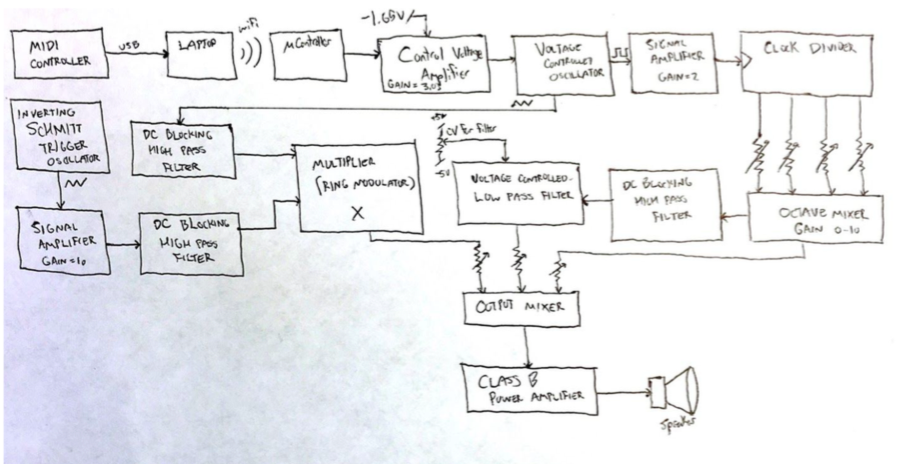 -1.65V
MIDI
CONTROLLER
USB
LAPTOP
wifi
μController
Control Voltage
Amplifier
VOLTAGE
CONTROLLED
OSCILLATOR
SIGNAL
AMPLIFIER
GAIN=2
CLOCK DIVIDER
INVERTING
SCHMITT
TRIGGER
OSCILLATOR
DC BLOCKING
HIGH PASS
FILTER
MULTIPLIER
(RING MODULATOR)
X
+5V
CV For Filter
-5V
VOLTAGE CONTROLLED
LOW PASS FILTER
DC BLOCKING
HIGH PASS
FILTER
OCTAVE MIXER
GAIN 0-10
SIGNAL
AMPLIFIER
GAIN=10
DC BLOCKING
HIGH PASS
FILTER
OUTPUT MIXER
CLASS B
POWER AMPLIFIER
Speaker